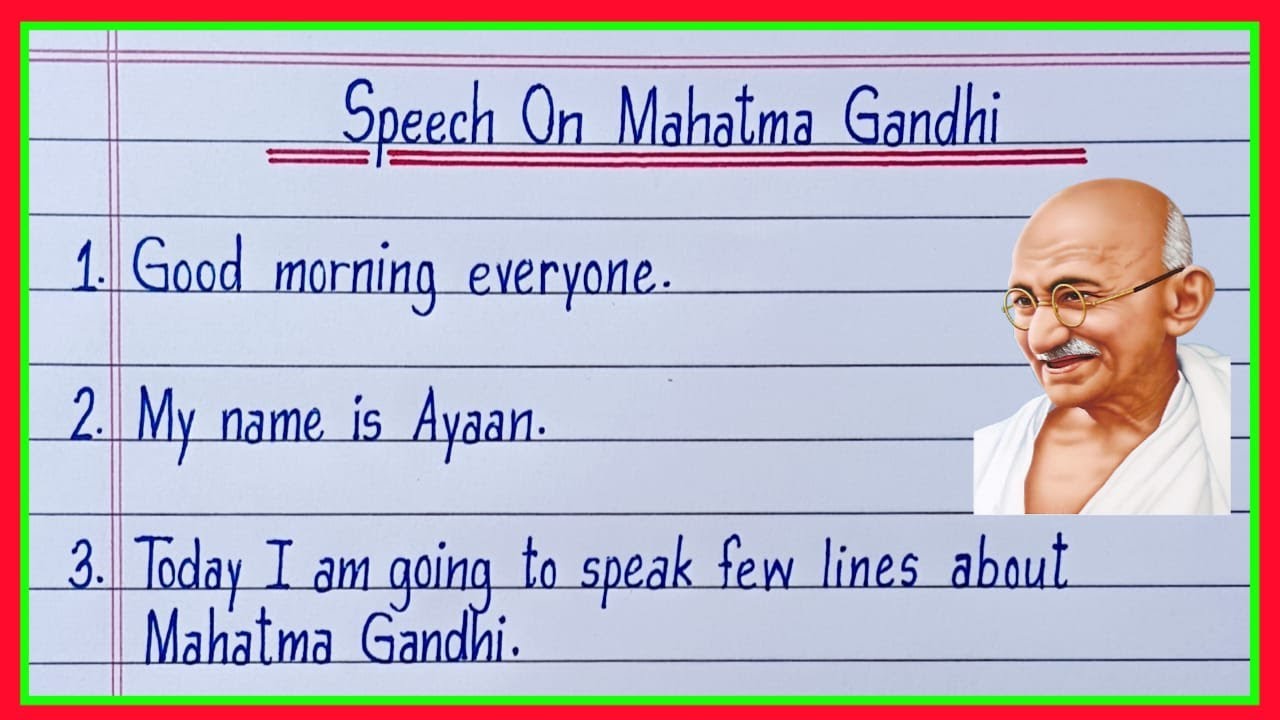 Speech On Mahatma Gandhi
1. Good morning everyone.
2. My name is Ayaan.
3. Today I am going to speak few lines about
Mahatma Gandhi.